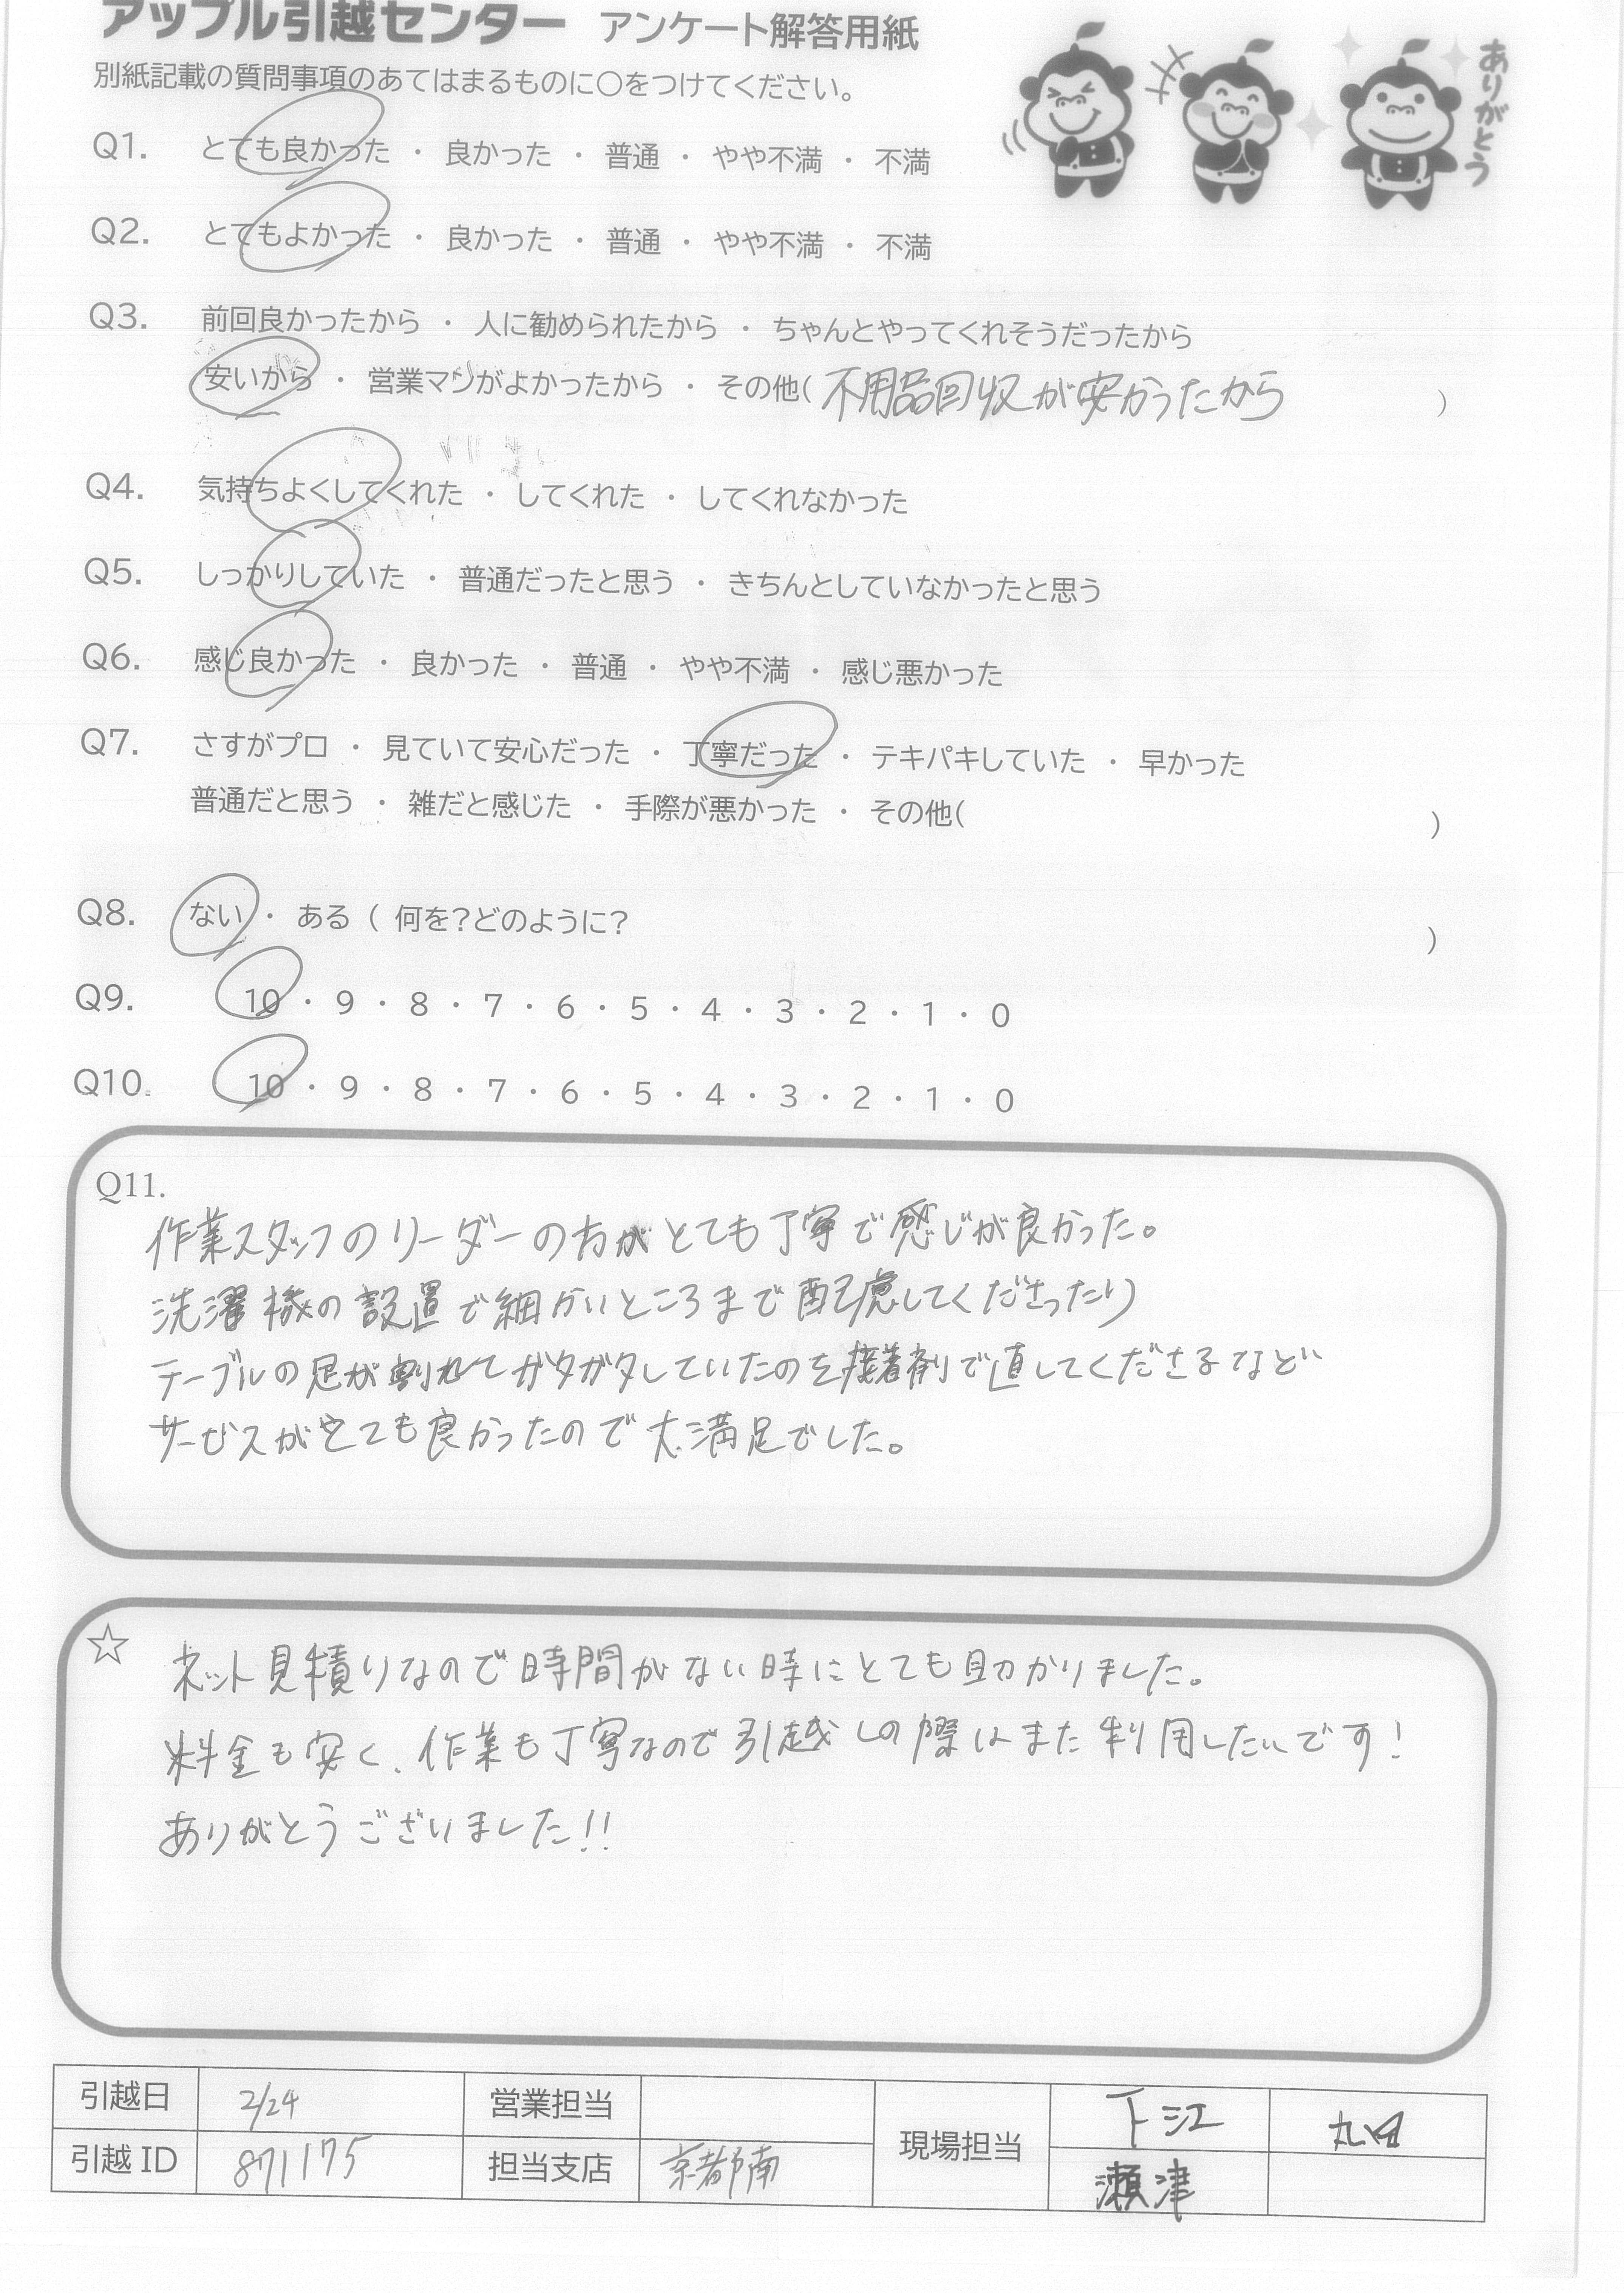 アップル引越センター アンケート解答用紙
別紙記載の質問事項のあてはまるものに○をつけてください。
ありがとう
Q1. とても良かった ・ 良かった ・ 普通 ・ やや不満 ・ 不満
Q2. とてもよかった ・ 良かった ・ 普通 ・ やや不満 ・ 不満
Q3. 前回良かったから ・ 人に勧められたから ・ ちゃんとやってくれそうだったから
安いから ・ 営業マンがよかったから ・ その他( 不用品回収が安かったから )
Q4. 気持ちよくしてくれた ・ してくれた ・ してくれなかった
Q5. しっかりしていた ・ 普通だったと思う ・ きちんとしていなかったと思う
Q6. 感じ良かった ・ 良かった ・ 普通 ・ やや不満 ・ 感じ悪かった
Q7. さすがプロ ・ 見ていて安心だった ・ 丁寧だった ・ テキパキしていた ・ 早かった
普通だと思う ・ 雑だと感じた ・ 手際が悪かった ・ その他( )
Q8. ない ・ ある ( 何を?どのように? )
Q9. 10 ・ 9 ・ 8 ・ 7 ・ 6 ・ 5 ・ 4 ・ 3 ・ 2 ・ 1 ・ 0
Q10. 10 ・ 9 ・ 8 ・ 7 ・ 6 ・ 5 ・ 4 ・ 3 ・ 2 ・ 1 ・ 0
Q11.
作業スタッフのリーダーの方がとても丁寧で感じが良かった。
洗濯機の設置で細かいところまで配慮してくださったり
テーブルの足が割れてガタガタしていたのを接着剤で直してくださるなど
サービスがとても良かったので大満足でした。
☆ ネット見積りなので時間がない時にとても助かりました。
料金も安く、作業も丁寧なので引越しの際はまた利用したいです!
ありがとうございました!!
引越日 2/24 営業担当 現場担当 下江 丸田
引越ID 871175 担当支店 京都南 瀬津